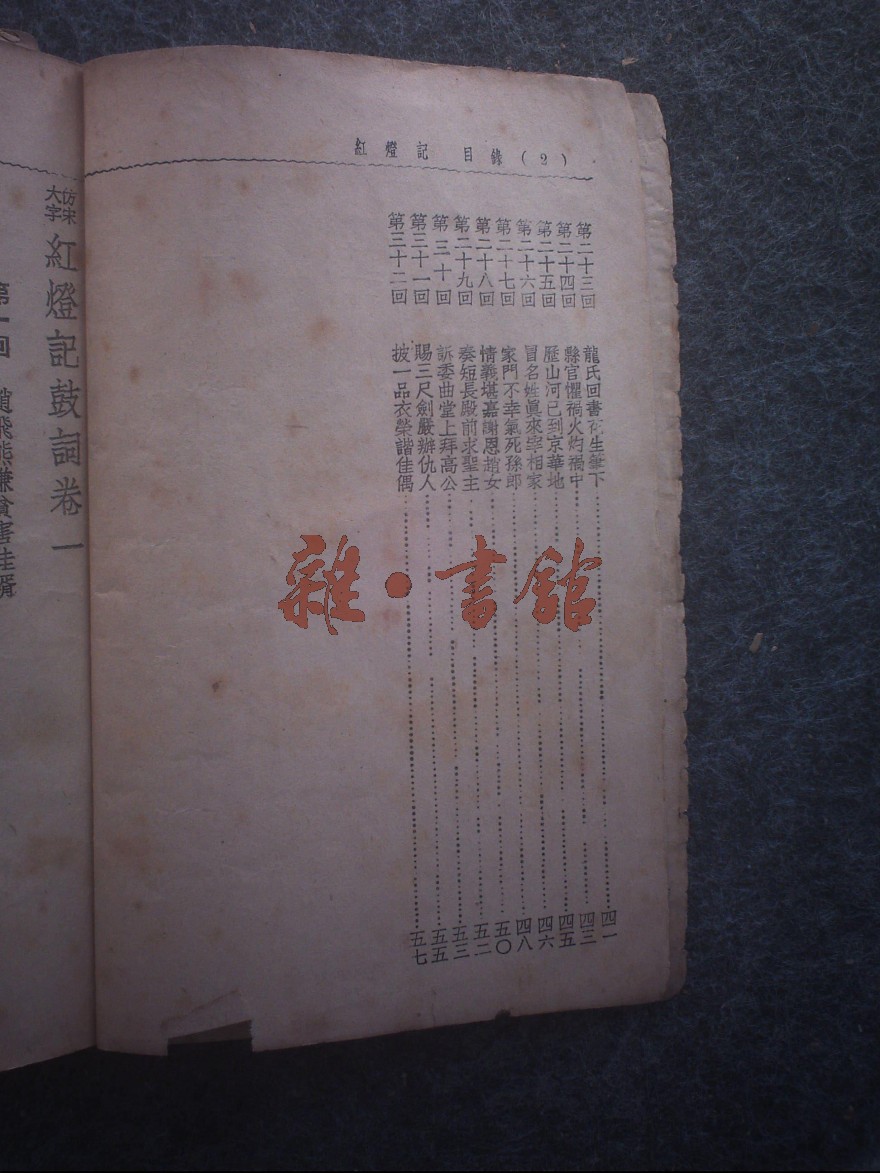 紅燈記 目錄 (2)
第二十三回 龍氏回書在生篋下 四一
第二十四回 縣官懼禍火灼禍中 四三
第二十五回 歷山河已到京華地 四五
第二十六回 冒名姓眞來宰相家 四六
第二十七回 家門不幸氣死孫郎 四八
第二十八回 情義堪嘉謝恩趙女 五〇
第二十九回 奏短長殿前求聖主 五二
第三十回 訴委曲堂上拜高公 五三
第三十一回 賜三尺劍嚴辦仇人 五五
第三十二回 披一品衣榮諧佳偶 五七
仿宋大字 紅燈記鼓詞卷一
第一回 趙飛熊嫌貧害佳婿
雜·書館